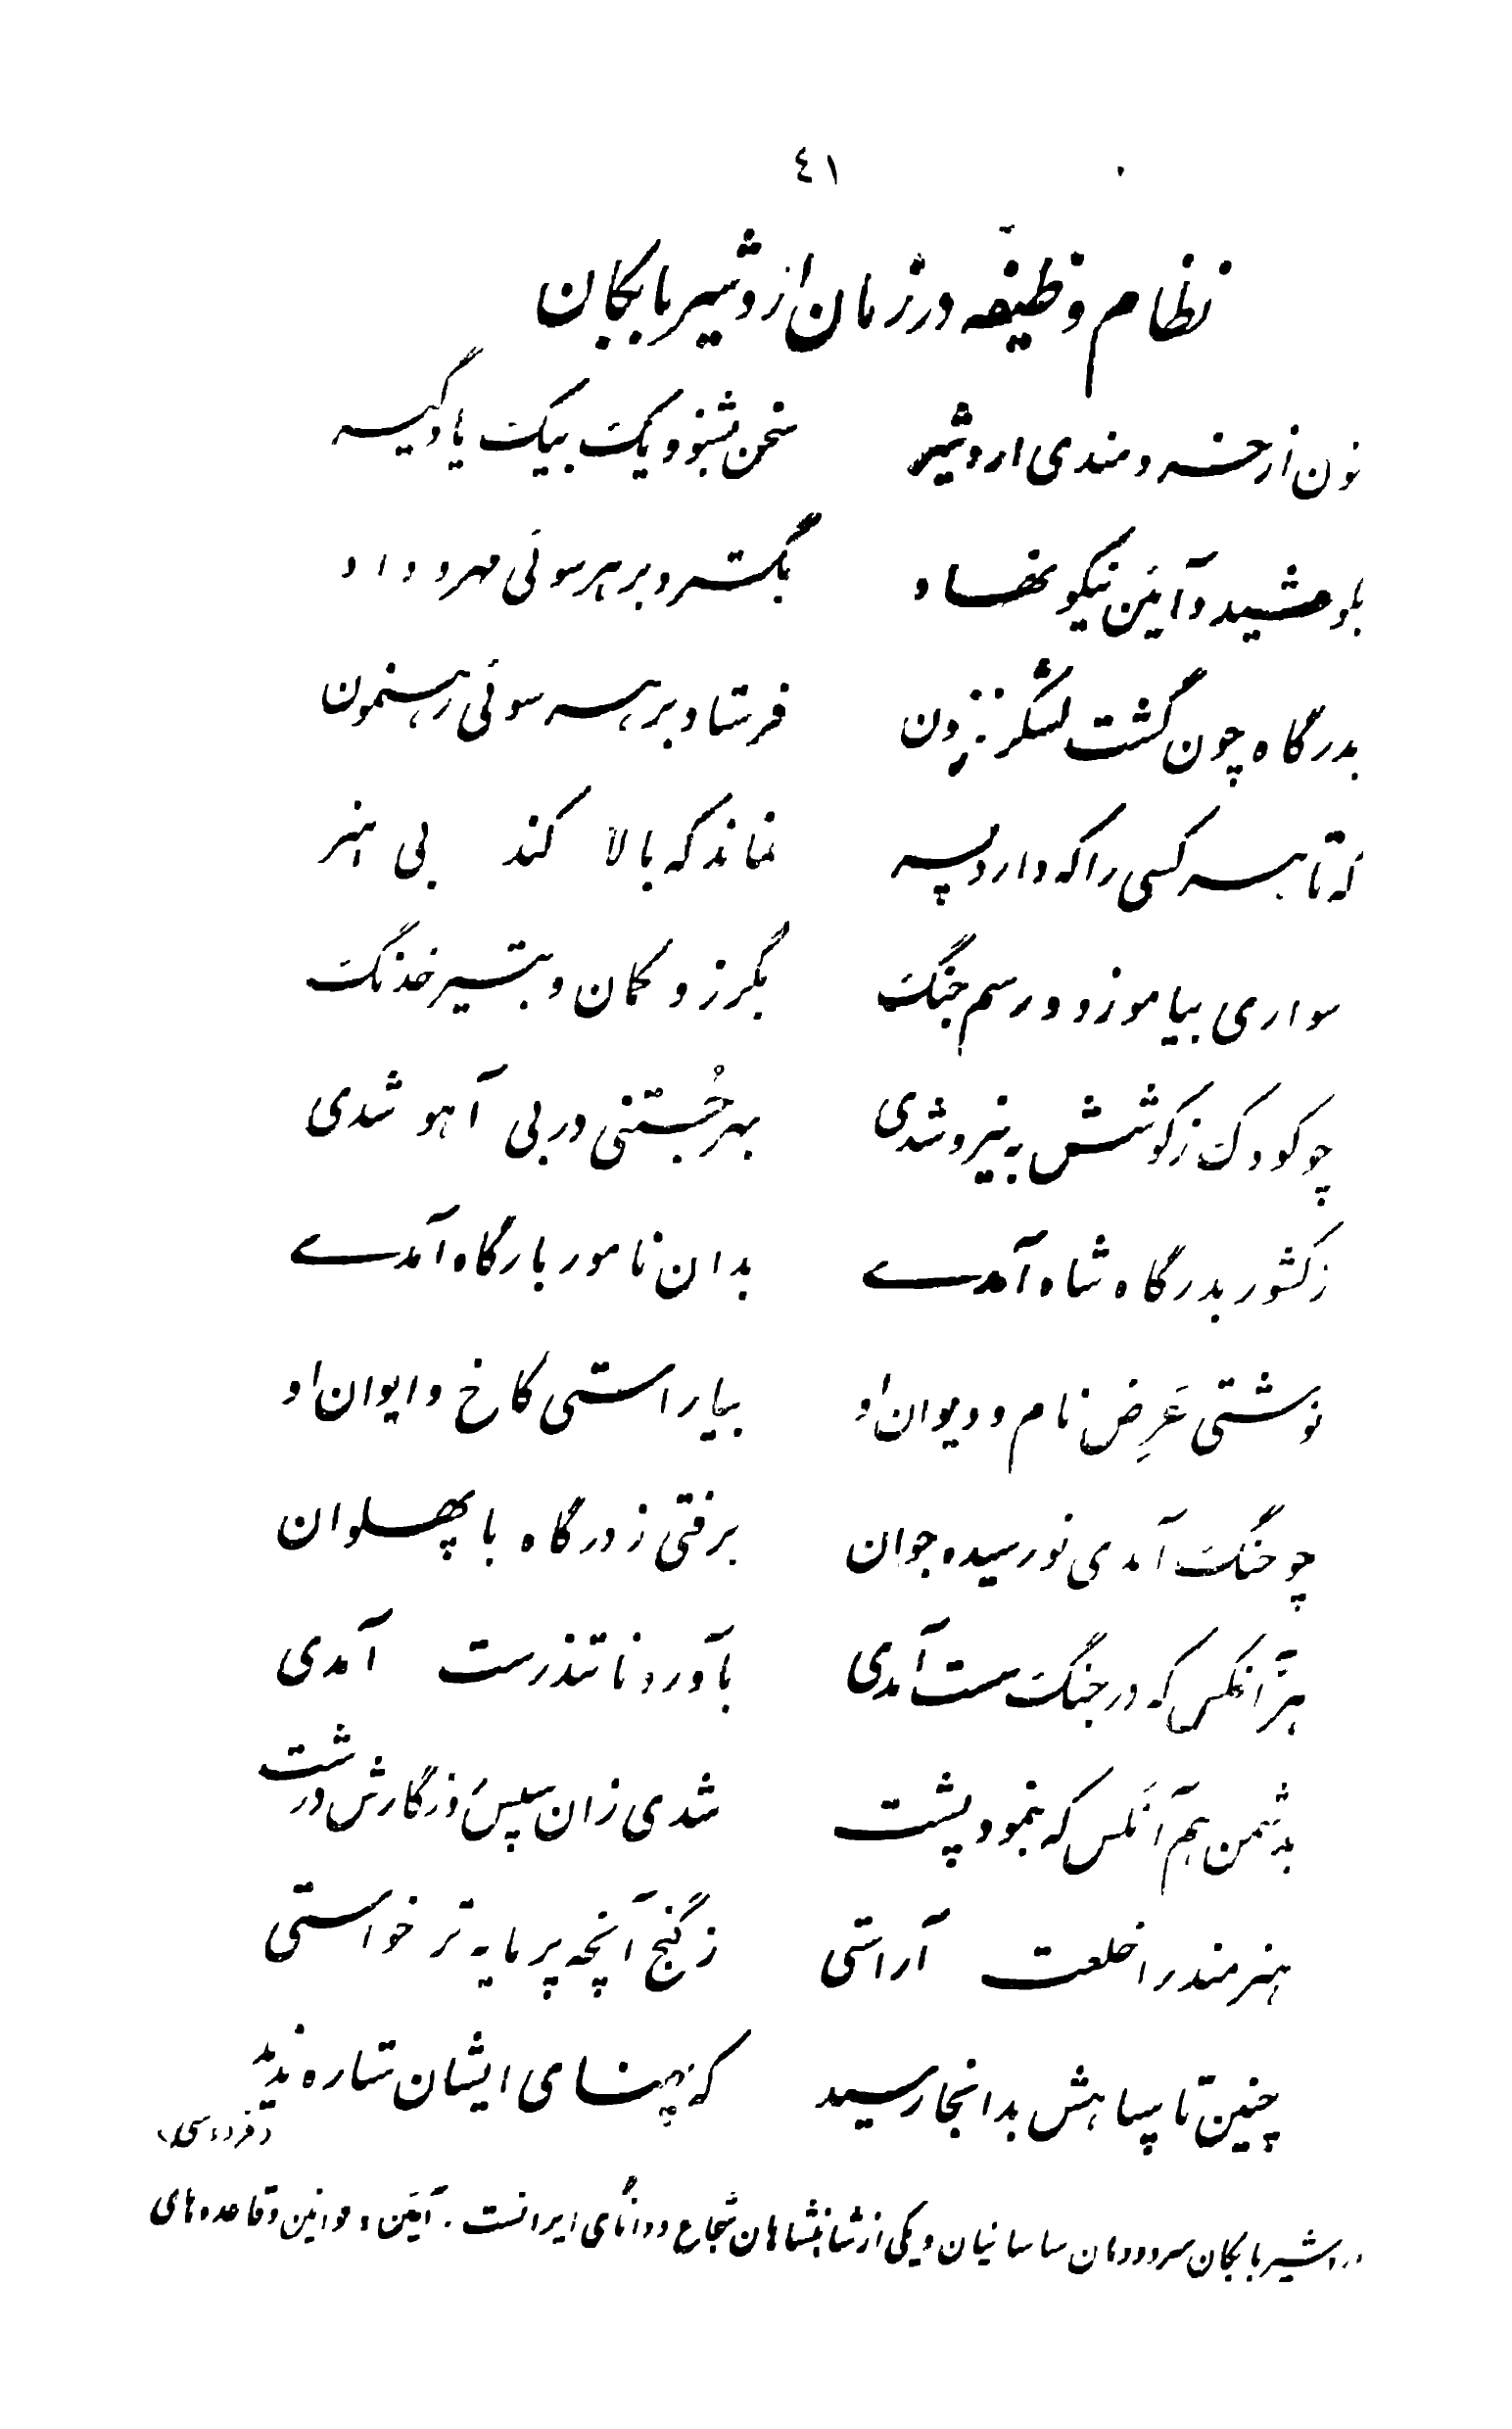 ٤١
نظام وظیفه در زمان اردشیر بابکان
کنون از خردمندی اردشیر سخن بشنو و یک بیک یاد گیر
بکوشید و آئین نیکو نهاد بگسترد بر هر سوئی مهر و داد
بدرگاه چون گشت لشکر فزون فرستاد بر هر سوئی رهنمون
که تا هر کسی را که دارد پسر نماند که بالا کند بی هنر
سواری بیاموزد و رسم جنگ بگرز و کمان و بتیر خدنگ
چو کودک ز کوشش به نیرو شدی بهر جُستنی در بی آهو شدی
ز کشور بدرگاه شاه آمدی بدان نامور بارگاه آمدی
نوشتی عَرِض نام و دیوان او بیاراستی کاخ و ایوان او
چو جنگ آمدی نورسیده جوان برفتی ز درگاه با پهلوان
هرآنکس که در جنگ سست آمدی بآورد ناتندرست آمدی
بدشمن هم آنکس که بنمود پشت شدی زان سپس روزگارش درشت
هنرمند را خلعت آراستی ز گنج آنچه پرمایه‌تر خواستی
چنین تا سپاهش بدانجا رسید که پهنای ایشان ستاره ندید
(فردوسی)
اردشیر بابکان سر دودمان ساسانیان و یکی از شاهنشاهان شجاع و دانای ایرانست. آئین و قوانین و قاعده‌های